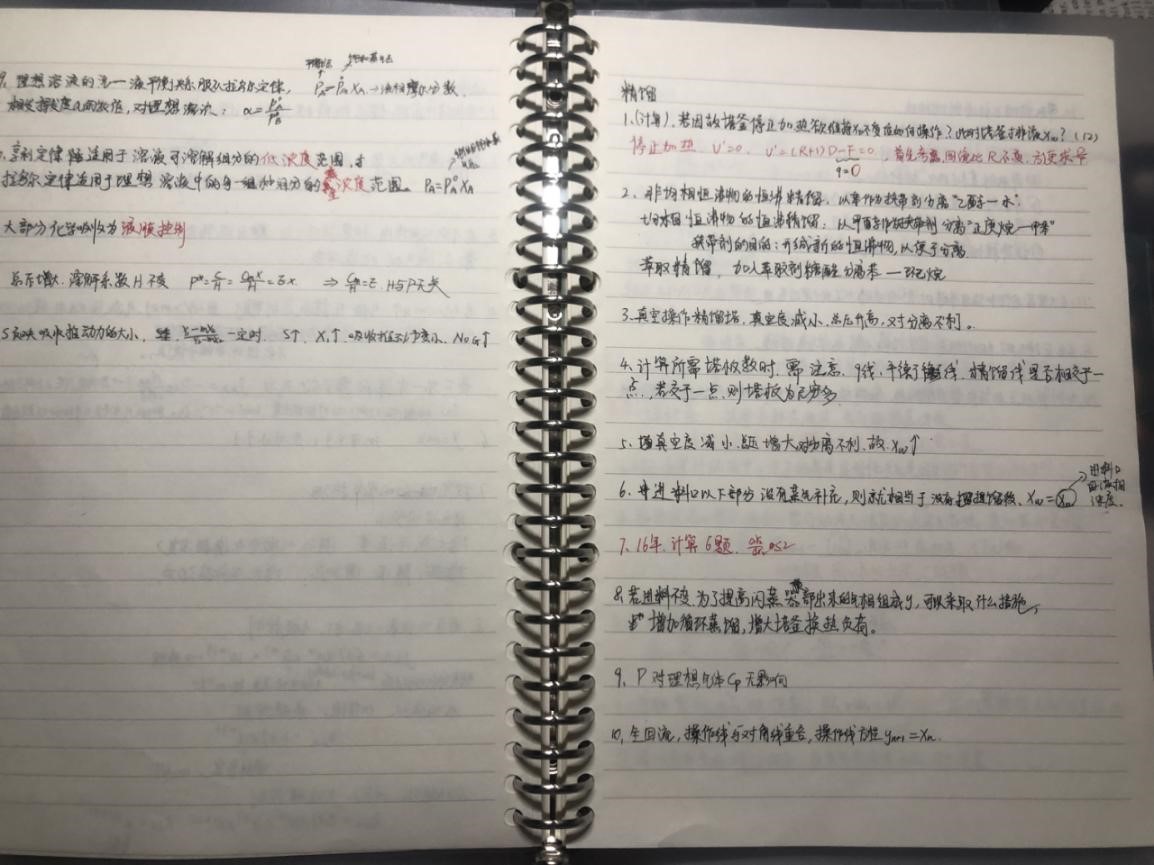 9. 理想溶液的汽一液平衡关系服从拉乌尔定律, PA=P°A XA → 液相摩尔分数.
相对挥发度α的数值, 对理想溶液: α=P°A/P°B
亨利定律 适用于溶液可溶解组分的低浓度范围, 而
拉乌尔定律适用于理想溶液中的每一组分的 浓度范围。 PA=PA°XA
大部分化学吸收为液膜控制
总压增大. 溶解系数H不变
S反映吸收推动力的大小, 一定时. S↑. X₁↑. 吸收推动力变小. NOG↑
精馏
1.(计算). 若因故塔釜停止加热欲维持XD不变应如何操作? 此时塔釜排液Xw? (12)
停止加热. V'=0. V'=(R+1)D-F=0, 回流比R不变,
q=0
2. 非均相恒沸物的恒沸精馏. 以苯作为挟带剂分离"乙醇一水".
均相恒沸物的恒沸精馏: 以甲醇作挟带剂 分离"正庚烷一甲苯"
挟带剂的目的: 形成新的恒沸物, 以便于分离
萃取精馏, 加入萃取剂糠醛分离苯一环己烷
3. 真空操作精馏塔. 真空度减小. 总压升高, 对分离不利。
4. 计算所需塔板数时. 需 注意. q线, 平衡线. 精馏线是否相交于一
点, 若交于一点, 则塔板为无穷多.
5. 塔真空度减小. 总压增大对分离不利. 故. Xw↑
6. 进料口以下部分 没有蒸汽补充, 则就相当于没有提馏段. Xw=Xm
进料口 液相浓度.
7. 16年. 计算6题.
8. 若进料不变. 为了提高闪蒸器 部出来的气相组成y, 可以采取什么措施.
增加循环蒸馏, 增大塔釜换热负荷。
9. P 对理想气体Cp无影响
10. 全回流, 操作线与对角线重合, 操作线方程yn+1=Xn.